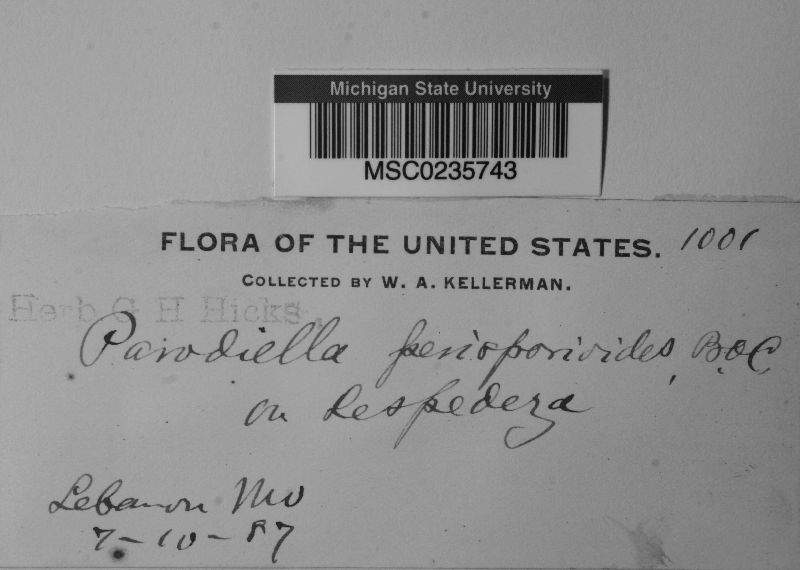 Michigan State University
MSC0235743
FLORA OF THE UNITED STATES. 1001
COLLECTED BY W. A. KELLERMAN.
Herb G H Hicks.
Parodiella perisporioides, B & C
on Lespedeza
Lebanon Mo
7-10-87